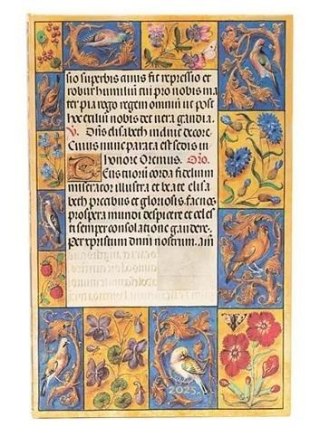 sio superbis cuius fit repressio et
robur humiliu tui pro nobis ma
ter pia rego regem omniu ut post
hec exiliu nobis det vera gaudia.
V. Diffusa
Cuius nunc parata est sedis in
honore Oremus. Oro.
Tuorum corda fidelium
miserator illustra et beate elisa
beth precibus et gloriosis. facnos
prospera mundi despicere et cel es
ti semper consolatione gaudere.
per xpristum dnm nostrum. Am
2025